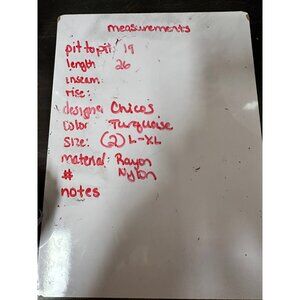 measurements
pit to pit: 19
length 26
inseam:
rise:
designer Chicos
color Turquoise
size: (2) L-XL
material: Rayon
# Nylon
notes